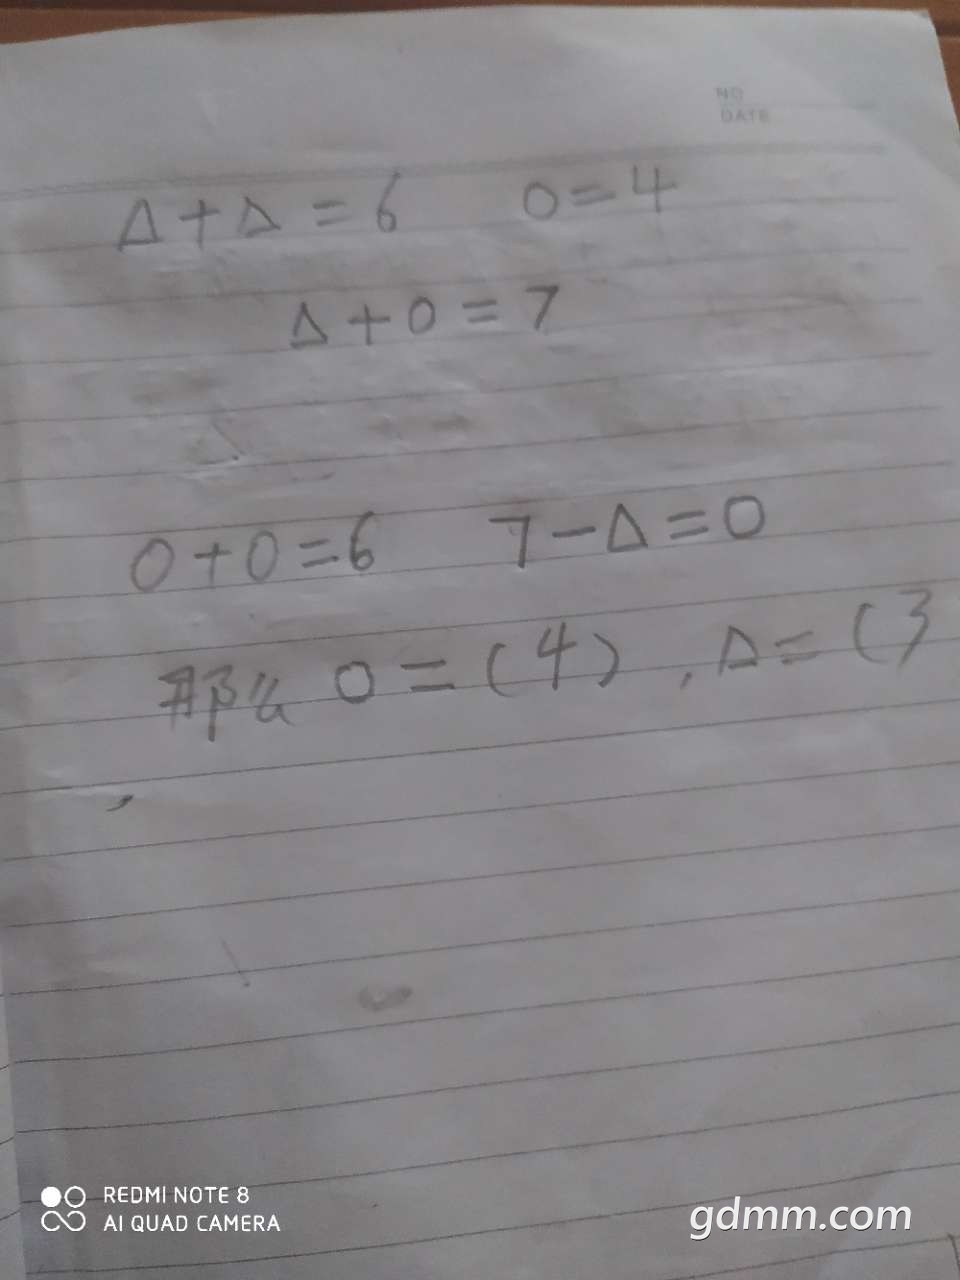 NO
DATE
△+△=6 ○=4
△+○=7
○+○=6 7-△=○
那么 ○=(4),△=(3
REDMI NOTE 8
AI QUAD CAMERA
gdmm.com